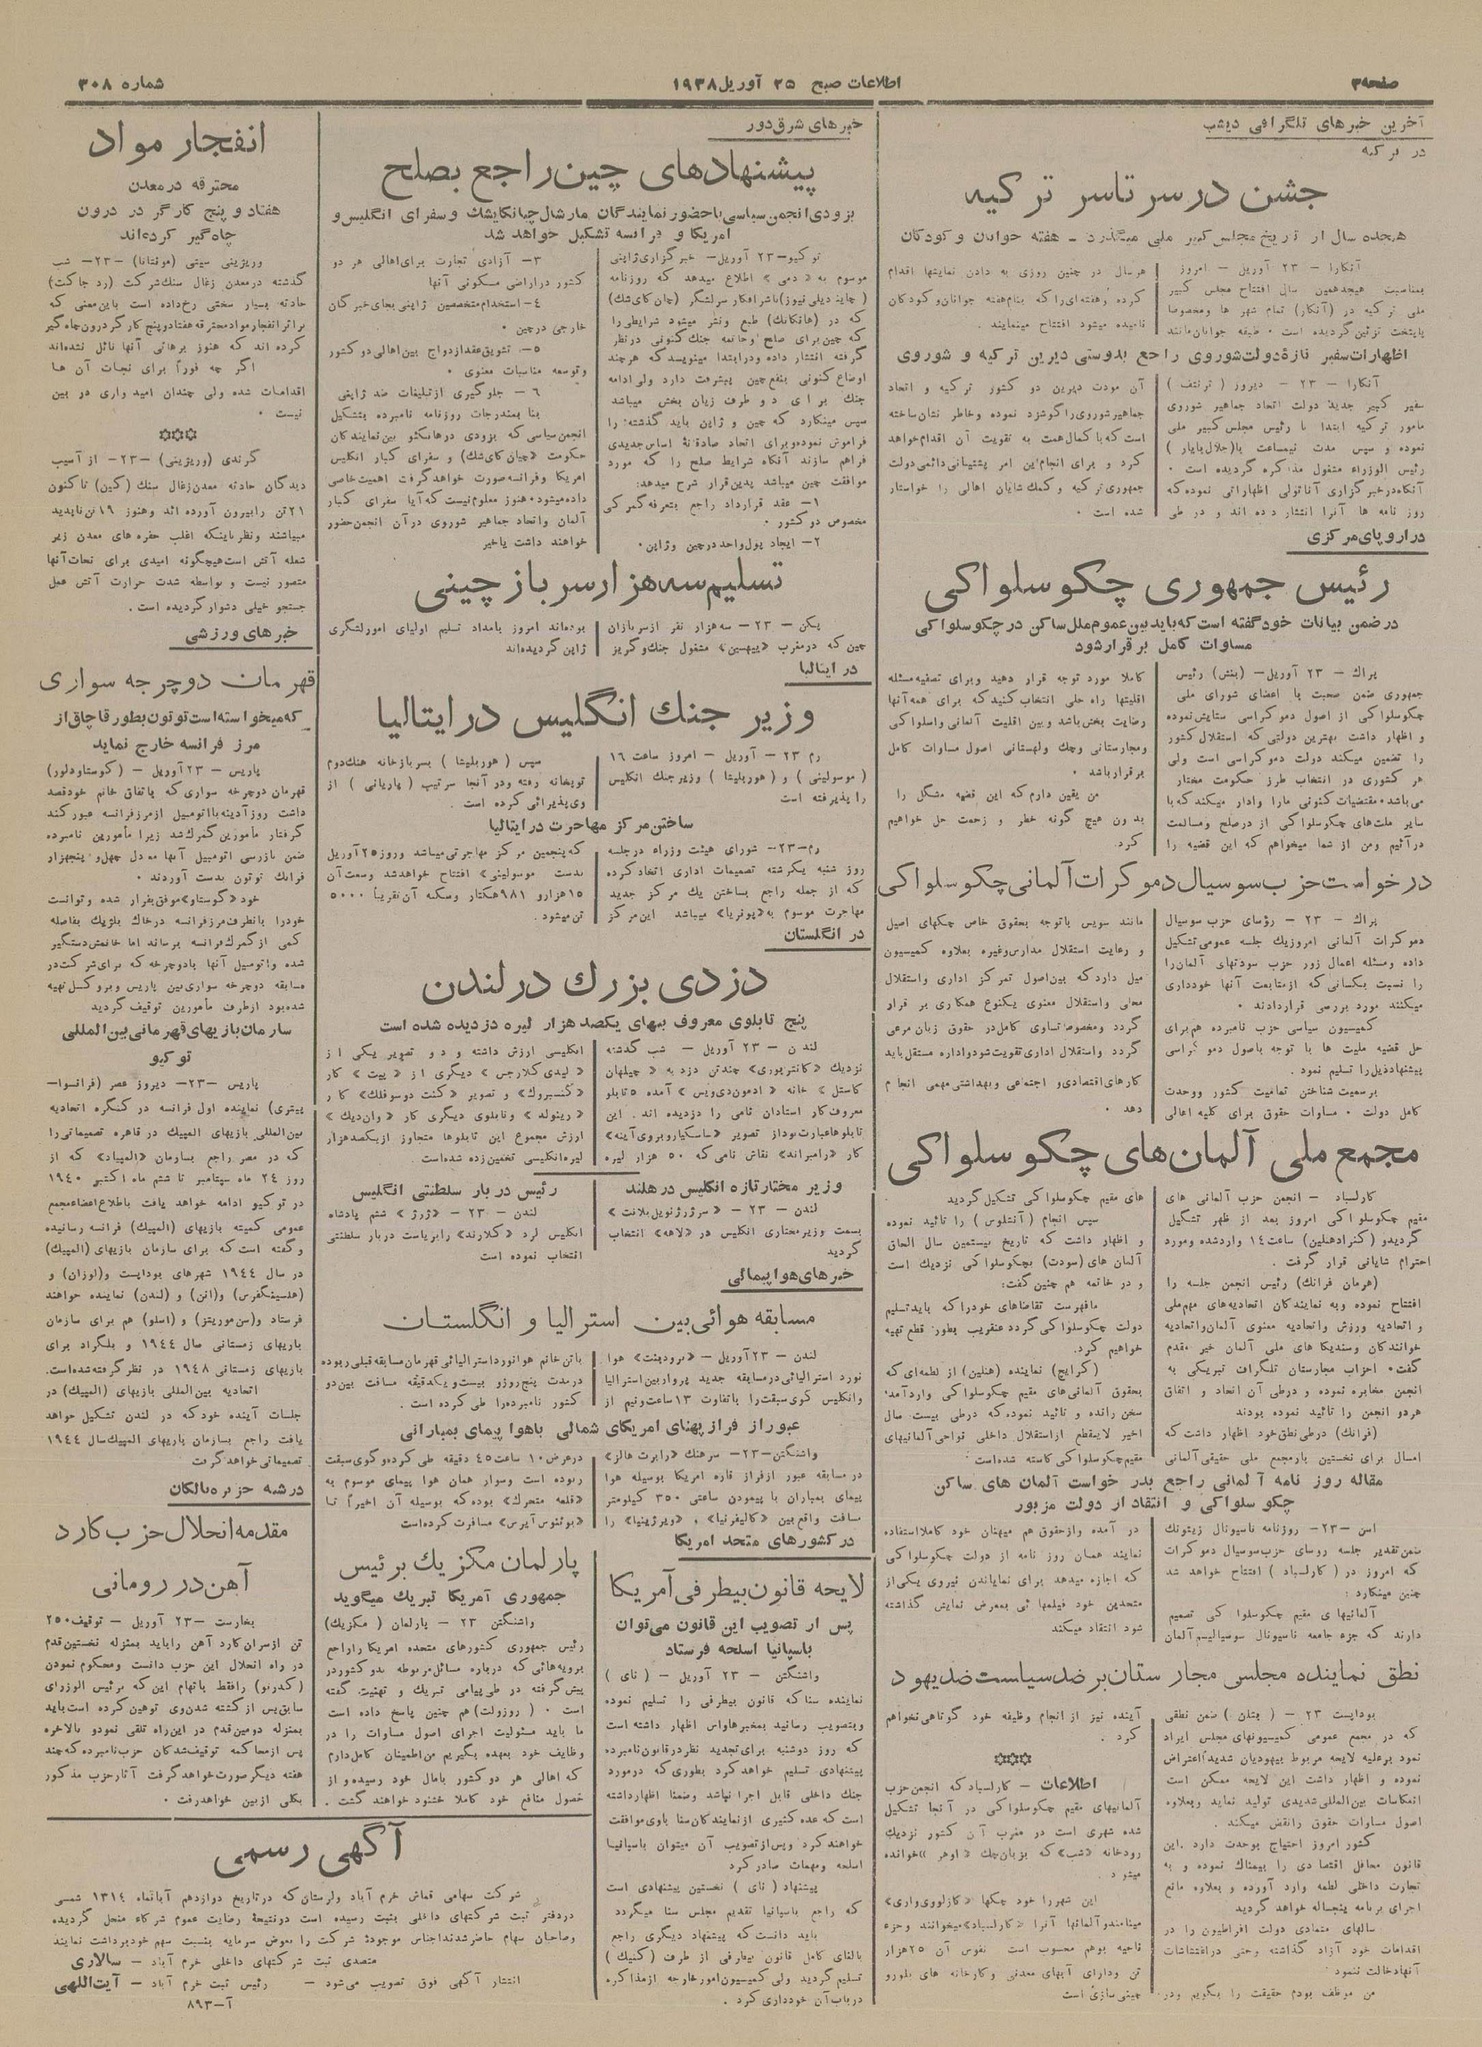 صفحه ۳
اطلاعات صبح ۲۵ آوریل ۱۹۳۸
شماره ۳۰۸
آخرین خبرهای تلگرافی دیشب
در ترکیه
جشن در سرتاسر ترکیه
هیجده سال از تاریخ مجلس کبیر ملی میگذرد ـ هفته جوانان و کودکان
آنکارا – ۲۳ آوریل – امروز
بمناسبت هیجدهمین سال افتتاح مجلس کبیر
ملی ترکیه در (آنکارا) تمام شهر ها ومخصوصا
پایتخت تزئین گردیده است ۰ طبقه جوانان مانند
هر سال در چنین روزی به دادن نمایشها اقدام
کرده وهفته‌ای را که بنام هفته جوانان و کودکان
نامیده میشود افتتاح مینمایند.
اظهارات سفیر تازهٔ دولت شوروی راجع بدوستی دیرین ترکیه و شوروی
آنکارا – ۲۳ – دیروز ( ترنتف )
سفیر کبیر جدید دولت اتحاد جماهیر شوروی
مامور ترکیه ابتدا با رئیس مجلس کبیر ملی
نموده و سپس مدت نیمساعت با(جلال بایار )
رئیس الوزراء مشغول مذاکره گردیده است ۰
آنگاه درخبر گزاری آناتولی اظهاراتی نموده که
روز نامه ها آنرا انتشار داده اند و در طی
آن مودت دیرین دو کشور ترکیه و اتحاد
جماهیر شوروی را گوشزد نموده وخاطر نشان ساخته
است که با کمال همت به تقویت آن اقدام خواهد
کرد و برای انجام این امر پشتیبانی دائمی دولت
جمهوری ترکیه و کمک شایان اهالی را خواستار
شده است ۰
در اروپای مرکزی
رئیس جمهوری چکوسلواکی
در ضمن بیانات خود گفته است که باید بین عموم ملل ساکن در چکوسلواکی
مساوات کامل برقرار شود
پراك – ۲۳ آوریل– (بنش) رئیس
جمهوری ضمن صحبت با اعضای شورای ملی
چکوسلواکی از اصول دموکراسی ستایش نموده
و اظهار داشت بهترین دولتی که استقلال کشور
را تضمین میکند دولت دموکراسی است ولی
هر کشوری در انتخاب طرز حکومت مختار
می باشد۰ مقتضیات کنونی مارا وادار میکند که با
سایر ملت‌های چکوسلواکی از در صلح ومسالمت
در آئیم ومن از شما میخواهم که این قضیه را
کاملا مورد توجه قرار دهید وبرای تصفیه مسئله
اقلیتها راه حلی انتخاب کنید که برای همه آنها
رضایت بخش باشد و بین اقلیت آلمانی واسلواکی
ومجارستانی وچك ولهستانی اصول مساوات کامل
برقرار باشد ۰
من یقین دارم که این قضیه مشکل را
بدون هیچ گونه خطر و زحمت حل خواهیم
کرد.
درخواست حزب سوسیال دموکرات آلمانی چکوسلواکی
پراك – ۲۳ – رؤسای حزب سوسیال
دموکرات آلمانی امروز یك جلسه عمومی تشکیل
داده ومسئله اعمال زور حزب سودتهای آلمان را
را نسبت بکسانی که از متابعت آنها خودداری
میکنند مورد بررسی قراردادند ۰
کمیسیون سیاسی حزب نامبرده هم برای
حل قضیه ملیت ها با توجه باصول دموکراسی
پیشنهاد ذیل را تسلیم نمود.
برسمیت شناختن تمامیت کشور ووحدت
کامل دولت ۰ مساوات حقوق برای کلیه اهالی
مانند سویس باتوجه بحقوق خاص چکهای اصیل
و رعایت استقلال مدارس وغیره بعلاوه کمیسیون
میل دارد که بین اصول تمرکز اداری واستقلال
محلی واستقلال معنوی یکنوع همکاری بر قرار
گردد ومخصوص تساوی کامل در حقوق زبان مرعی
گردد واستقلال اداری تقویت شود واداره مستقل باید
کارهای اقتصادی و اجتماعی وبهداشتی مهمی انجام
دهد ۰
مجمع ملی آلمان‌های چکوسلواکی
کارلسباد – انجمن حزب آلمانی های
مقیم چکوسلواکی امروز بعد از ظهر تشکیل
گردید و(کنراد هنلین) ساعت ۱٤ وارد شده ومورد
احترام شایانی قرار گرفت .
(هرمان فرانك) رئیس انجمن جلسه را
افتتاح نموده وبه نمایندگان اتحادیه های مهم ملی
و اتحادیه ورزش واتحادیه معنوی آلمان واتحادیه
خوانندگان وسندیکا های ملی آلمان خیر مقدم
گفت۰ احزاب مجارستان تلگراف تبریکی به
انجمن مخابره نموده و درطی آن اتحاد و اتفاق
هر دو انجمن را تائید نموده بودند
(فرانك) درطی نطق خود اظهار داشت که
امسال برای نخستین بار مجمع ملی حقیقی آلمانی
های مقیم چکوسلواکی تشکیل گردید
سپس انجام (آنشلوس) را تائید نموده
و اظهار داشت که تاریخ بیستمین سال الحاق
آلمان های (سودت) بچکوسلواکی نزدیك است
و در خاتمه هم چنین گفت:
مافهرست تقاضاهای خودرا که باید تسلیم
دولت چکوسلواکی گردد عنقریب بطور قطع تهیه
خواهیم کرد.
(کرایچ) نماینده (هنلین) از لطمه‌ای که
بحقوق آلمانی‌های مقیم چکوسلواکی وارد آمده
سخن رانده و تائید نموده که درطی بیست سال
اخیر لاینقطع از استقلال داخلی نواحی آلمانیهای
مقیم چکوسلواکی کاسته شده است؛
مقاله روز نامه آلمانی راجع بدر خواست آلمان های ساکن
چکوسلواکی و انتقاد از دولت مزبور
اسن –۲۳– روزنامه ناسیونال زیتونك
ضمن تقدیر جلسه روسای حزب سوسیال دموکرات
که امروز در ( کارلسباد ) افتتاح خواهد شد
چنین مینگارد :
آلمانیهای مقیم چکوسلواکی تصمیم
دارند که جزء جامعه ناسیونال سوسیالیسم آلمان
در آمده وازحقوق هم میهنان خود کاملا استفاده
نمایند همان روز نامه از دولت چکوسلواکی
که اجازه میدهد برای نمایاندن نیروی یکی از
متحدین خود فیلمهائی بمعرض نمایش گذاشته
شود انتقاد میکند
نطق نماینده مجلس مجارستان بر ضد سیاست ضد یهود
بوداپست ۲۳ – ( بتلن ) ضمن نطقی
که در مجمع عمومی کمیسیونهای مجلس ایراد
نمود برعلیه لایحه مربوط بیهودیان شدیداً اعتراض
نموده و اظهار داشت این لایحه ممکن است
انعکاسات بین المللی شدیدی تولید نماید وبعلاوه
اصول مساوات حقوق را نقض میکند.
کشور امروز احتیاج بوحدت دارد . این
قانون محافل اقتصادی را بیمناك نموده و به
تجارت داخلی لطمه وارد آورده و بعلاوه مانع
اجرای برنامه پنجساله خواهد گردید
سالهای متمادی دولت افراطیون را در
اقدامات خود آزاد گذاشته وحتی دراغتشاشات
آنها دخالت ننمود
من موظف بودم حقیقت را بگویم ودر
آینده نیز از انجام وظیفه خود کوتاهی نخواهم
کرد .
اطلاعات – کارلسباد که انجمن حزب
آلمانیهای مقیم چکوسلواکی در آنجا تشکیل
شده شهری است در مغرب آن کشور نزدیك
رودخانه «تپ» که بزبان چك « اوهر » خوانده
میشود
این شهر را خود چکها «کارلووی‌واری»
مینامند و آلمانها آنرا «کارلسباد» میخوانند و جزء
ناحیه بوهم محسوب است نفوس آن ۲۵هزار
تن ودارای آبهای معدنی و کارخانه های بلور و
چینی سازی است
خبرهای شرق دور
پیشنهادهای چین راجع بصلح
بزودی انجمن سیاسی با حضور نمایندگان مارشال چیانکایشك و سفرای انگلیس و
امریکا و فرانسه تشکیل خواهد شد
توکیو–۲۳ آوریل– خبرگزاری ژاپنی
موسوم به « دمی » اطلاع میدهد که روزنامه
(چاینه دیلی نیوز) ناشر افکار سرلشگر (چان کای شك)
که در (هانکائو) طبع ونشر میشود شرایطی را
که چین برای صلح وخاتمه جنك کنونی در نظر
گرفته انتشار داده ودر ابتدا مینویسد که هر چند
اوضاع کنونی بنفع چین پیشرفت دارد ولی ادامه
جنك برای دو طرف زیان بخش میباشد
سپس مینگارد که چین و ژاپن باید گذشته را
فراموش نموده وبرای اتحاد صادقانهٔ اساس جدیدی
فراهم سازند آنگاه شرایط صلح را که مورد
موافقت چین میباشد بدین قرار شرح میدهد:
۱– عقد قرارداد راجع بتعرفه گمرکی
مخصوص دو کشور ۰
۲– ایجاد پول واحد در چین و ژاپن۰
۳– آزادی تجارت برای اهالی هر دو
کشور در اراضی مسکونی آنها
٤– استخدام متخصصین ژاپنی بجای خبرگان
خارجی در چین ۰
۵– تشویق عقد ازدواج بین اهالی دو کشور
وتوسعه مناسبات معنوی ۰
۶ – جلوگیری از تبلیغات ضد ژاپنی
بنا بمندرجات روزنامه نامبرده بتشکیل
انجمن سیاسی که بزودی در هانکئو بین نمایندگان
حکومت «چیان کای شك» و سفرای کبار انگلیس
امریکا و فرانسه صورت خواهد گرفت اهمیت خاصی
داده میشود۰ هنوز معلوم نیست که آیا سفرای کبار
آلمان واتحاد جماهیر شوروی در آن انجمن حضور
خواهند داشت یا خیر
تسلیم سه هزار سرباز چینی
پکن – ۲۳ – سه هزار نفر از سربازان
چین که در مغرب «پیهسین» مشغول جنك و گریز
بوده‌اند امروز بامداد تسلیم اولیای امور لشگری
ژاپن گردیده‌اند
در ایتالیا
وزیر جنك انگلیس در ایتالیا
رم ۲۳ – آوریل – امروز ساعت ۱۶
( موسولینی ) و (هوربلیشا ) وزیر جنك انگلیس
را پذیرفته است
سپس ( هوربلیشا ) بسربازخانه هنك دوم
توپخانه رفته ودر آنجا سرتیپ ( پاریانی ) از
وی پذیرائی کرده است .
ساختن مرکز مهاجرت در ایتالیا
رم–۲۳– شورای هیئت وزراء در جلسه
روز شنبه یکرشته تصمیمات اداری اتخاذ کرده
که از جمله راجع بساختن یك مرکز جدید
مهاجرت موسوم به «پونزیا» میباشد این مرکز
که پنجمین مرکز مهاجرتی میباشد و روز ۲۵ آوریل
بدست موسولینی » افتتاح خواهد شد وسعت آن
۱۵هزارو ۹۸۱ هکتار وسکنه آن تقریباً ۵۰۰۰
تن میشود.
در انگلستان
دزدی بزرك در لندن
پنج تابلوی معروف ببهای یکصد هزار لیره دزدیده شده است
لندن – ۲۳ آوریل – شب گذشته
نزدیك «کانتربوری» چند تن دزد به « چیلهام
کاستل » خانه « ادموند دی ویس » آمده ۵ تابلو
معروف کار استادان نامی را دزدیده اند. این
تابلوها عبارت بود از تصویر «ساسکیا روبروی آینه»
کار «رامبراند» نقاش نامی که ۵۰ هزار لیره
انگلیسی ارزش داشته و دو تصویر یکی از
«لیدی کلارجس » دیگری از « پیت » کار
«گنسبروك» و تصویر «کنت دوسوفلك» کار
«رینولد» و تابلوی دیگری کار «وان دیك»
ارزش مجموع این تابلوها متجاوز از یکصد هزار
لیره انگلیسی تخمین زده شده است.
وزیر مختار تازه انگلیس در هلند
لندن – ۲۳ – «سرژرژ نویل بلانت»
بسمت وزیر مختاری انگلیس در «لاهه» انتخاب
گردید
رئیس دربار سلطنتی انگلیس
لندن – ۲۳ – «ژرژ» ششم پادشاه
انگلیس لرد «کلارند» را بریاست دربار سلطنتی
انتخاب نموده است
خبرهای هواپیمائی
مسابقه هوائی بین استرالیا و انگلستان
لندن – ۲۳ آوریل – «برودبنت» هوا
نورد استرالیائی در مسابقه جدید پرواز بین استرالیا
وانگلیس گوی سبقت را باتفاوت ۱۳ ساعت ونیم از
باتن خانم هوانورد استرالیائی قهرمان مسابقه قبلی ربوده
در مدت پنج روز و بیست ویکدقیقه مسافت بین دو
کشور نامبرده را طی کرده است .
عبور از فراز پهنای امریکای شمالی باهواپیمای بمبارانی
واشنگتن–۲۳– سرهنك «رابرت هالز»
در مسابقه عبور از فراز قاره امریکا بوسیله هوا
پیمای بمباران با پیمودن ساعتی ۳۵۰ کیلومتر
مسافت واقع بین «کالیفرنیا» و «ویرژینیا» را
در عرض ۱۰ ساعت ٤۵ دقیقه طی کرده گوی سبقت
ربوده است وسوار همان هوا پیمای موسوم به
«قلعه متحرك» بوده که بوسیله آن اخیراً تا
«بوئنوس آیرس» مسافرت کرده است
در کشورهای متحد امریکا
لایحه قانون بیطرفی آمریکا
پس از تصویب این قانون می توان
باسپانیا اسلحه فرستاد
واشنگتن – ۲۳ آوریل – ( نای )
نماینده سنا که قانون بیطرفی را تسلیم نموده
وبتصویب رسانید بمخبر هاواس اظهار داشته است
که روز دوشنبه برای تجدید نظر در قانون نامبرده
پیشنهادی تسلیم خواهد کرد بطوری که در مورد
جنك داخلی قابل اجرا نباشد وضمنا اظهار داشته
است که عده کثیری از نمایندگان سنا باوی موافقت
خواهند کرد وپس از تصویب آن میتوان باسپانیا
اسلحه ومهمات صادر کرد
پیشنهاد ( نای ) نخستین پیشنهادی است
که راجع باسپانیا تقدیم مجلس سنا میگردد
باید دانست که پیشنهاد دیگری راجع
بالغای کامل قانون بیطرفی از طرف (کنیك)
تسلیم گردید ولی کمیسیون امور خارجه از مذاکره
در باب آن خودداری کرد .
پارلمان مکزیك برئیس
جمهوری آمریکا تبریك میگوید
واشنگتن ۲۳ – پارلمان ( مکزیك)
رئیس جمهوری کشورهای متحده امریکا را راجع
برویه‌هائی که درباره مسائل مربوطه بدو کشور در
پیش گرفته در طی پیامی تبریك و تهنیت گفته
است ۰ ( روزولت) هم چنین پاسخ داده است
ما باید مسئولیت اجرای اصول مساوات را در
وظایف خود بعهده بگیریم من اطمینان کامل دارم
که اهالی هر دو کشور بامال خود رسیده و از
حصول منافع خود کاملا خشنود خواهند گشت .
انفجار مواد
محترقه در معدن
هفتاد و پنج کارگر در درون
چاه گیر کرده‌اند
ویرژینی سیتی (مونتانا) –۲۳– شب
گذشته در معدن زغال سنك شرکت (رد جاکت)
حادثه بسیار سختی رخ داده است باین معنی که
براثر انفجار مواد محترقه هفتاد و پنج کارگر درون چاه گیر
کرده اند که هنوز برهائی آنها نائل نشده‌اند
اگر چه فوراً برای نجات آن ها
اقدامات شده ولی چندان امیدواری در بین
نیست ۰
گرندی (ویرژینی) –۲۳– از آسیب
دیدگان حادثه معدن زغال سنك (کین) تاکنون
۲۱تن را بیرون آورده اند وهنوز ۱۹ تن ناپدید
میباشند ونظر باینکه اغلب حفره های معدن زیر
شعله آتش است هیچگونه امیدی برای نجات آنها
متصور نیست و بواسطه شدت حرارت آتش عمل
جستجو خیلی دشوار گردیده است .
خبرهای ورزشی
قهرمان دوچرخه سواری
که میخواسته است توتون بطور قاچاق از
مرز فرانسه خارج نماید
پاریس –۲۳ آوریل – (گوستاو دلور)
قهرمان دوچرخه سواری که باتفاق خانم خود قصد
داشت روز آدینه با اتومبیل از مرز فرانسه عبور کند
گرفتار مأمورین گمرك شد زیرا مأمورین نامبرده
ضمن بازرسی اتومبیل آنها معدل چهل و پنجهزار
فرانك توتون بدست آوردند ۰
خود «گوستاو» موفق بفرار شده وتوانست
خودرا بآنطرف مرز فرانسه در خاك بلژیك بفاصله
کمی از گمرك فرانسه برساند اما خانمش دستگیر
شده و اتومبیل آنها بادوچرخه که برای شرکت در
مسابقه دوچرخه سواری بین پاریس و بروکسل تهیه
شده بود از طرف مأمورین توقیف گردید
سازمان بازیهای قهرمانی بین المللی
توکیو
پاریس –۲۳– دیروز عصر (فرانسوا–
پیتری) نماینده اول فرانسه در کنگره اتحادیه
بین المللی بازیهای المپیك در قاهره تصمیماتی را
که در مصر راجع بسازمان «المپیاد» که از
روز ۲٤ ماه سپتامبر تا ششم ماه اکتبر ۱۹٤۰
در توکیو ادامه خواهد یافت باطلاع اعضاء مجمع
عمومی کمیته بازیهای (المپیك) فرانسه رسانیده
وگفته است که برای سازمان بازیهای (المپیك)
در سال ۱۹٤٤ شهرهای بوداپست و(لوزان) و
(هلسینگفرس) و(آتن) و (لندن) نماینده خواهند
فرستاد و(سن موریتز) و (اسلو) هم برای سازمان
بازیهای زمستانی سال ۱۹٤٤ و بلگراد برای
بازیهای زمستانی ۱۹٤۸ در نظر گرفته شده است.
اتحادیه بین المللی بازیهای (المپیك) در
جلسات آینده خود که در لندن تشکیل خواهد
یافت راجع بسازمان بازیهای المپیك سال ۱۹٤٤
تصمیماتی خواهد گرفت
در شبه جزیره بالکان
مقدمه انحلال حزب گارد
آهن در رومانی
بخارست –۲۳ آوریل – توقیف ۲۵۰
تن از سران گارد آهن را باید بمنزله نخستین قدم
در راه انحلال این حزب دانست ومحکوم نمودن
(کدرنو) را فقط باتهام این که برئیس الوزرای
سابق پس از کشته شدن وی توهین کرده است باید
بمنزله دومین قدم در این راه تلقی نمود و بالاخره
پس از محاکمه توقیف شدگان حزب نامبرده که چند
هفته دیگر صورت خواهد گرفت آثار حزب مذکور
بکلی از بین خواهد رفت ۰
آگهی رسمی
شرکت سهامی قماش خرم آباد ولرستان که در تاریخ دوازدهم آبانماه ۱۳۱٤ شمسی
در دفتر ثبت شرکتهای داخلی بثبت رسیده است در نتیجهٔ رضایت عموم شرکاء منحل گردیده
وصاحبان سهام حاضر شدند اجناس موجودهٔ شرکت را بعوض سرمایه بنسبت سهم خود برداشت نمایند
متصدی ثبت شرکتهای داخلی خرم آباد – سالاری
انتشار آگهی فوق تصویب می‌شود – رئیس ثبت خرم آباد – آیت‌اللهی
آ–۸۹۳